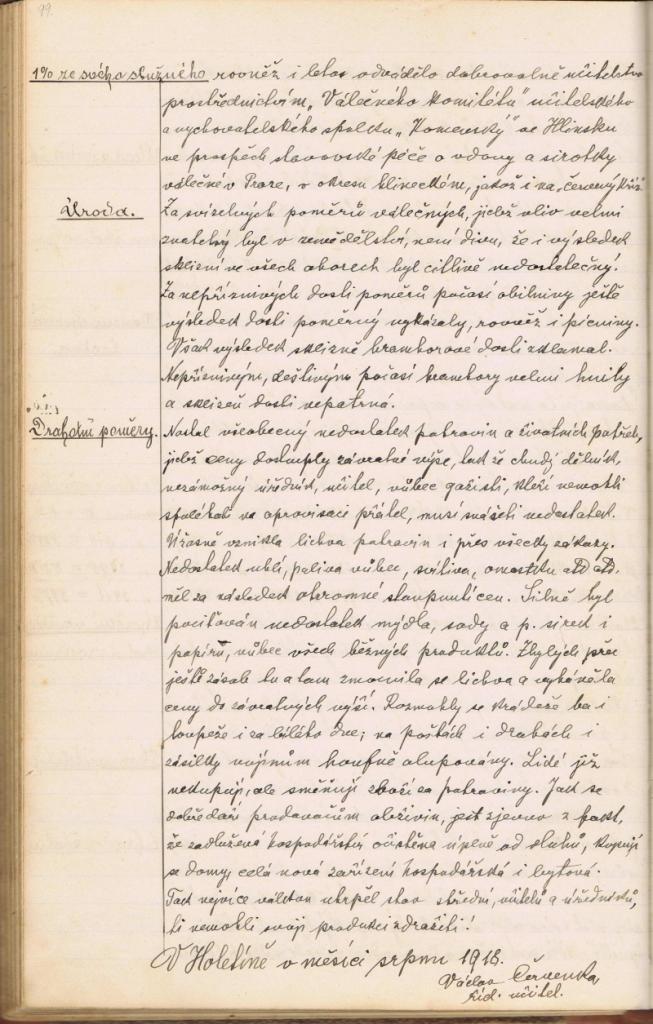 99.
1% ze svého služného rovněž i letos odvádělo dobrovolně učitelstvo
prostřednictvím „Válečného komitétu" učitelského
a vychovatelského spolku „Komenský" ve Hlinsku
ve prospěch stavovské péče o vdovy a sirotky
válečné v Praze, v okresu hlineckém, jakož i na „červený kříž"
Úroda.
Za svízelných poměrů válečných, jichž vliv velmi
znatelný byl v zemědělství, není divu, že i výsledek
sklizní ve všech oborech byl citlivě nedostatečný.
Za nepříznivých dosti poměrů počasí obilniny ještě
výsledek dosti poměrný vykázaly, rovněž i pícniny.
Však výsledek sklizně bramborové dosti zklamal.
Nepříznivým, deštivým počasí brambory velmi hnily
a sklizeň dosti nepatrná.
Drahotní poměry.
Nastal všeobecný nedostatek potravin a životních potřeb,
jichž ceny dostouply závratné výše, tak že chudý dělník,
nezámožný úředník, učitel, vůbec gažisti, kteří nemohli
spoléhati na aprovisaci přátel, musí snášeti nedostatek.
Úžasně vznikla lichva potravin i přes všecky zákazy.
Nedostatek uhlí, paliva vůbec, svítiva, omastku atd atd.
měl za následek ohromné stoupnutí cen. Silně byl
pociťován nedostatek mýdla, sody a p. sirek i
papíru, vůbec všech běžných produktů. Zbylých přec
ještě zásob tu a tam zmocnila se lichva a vyháněla
ceny do závratných výší. Rozmohly se krádeže ba i
loupeže i za bílého dne; na poštách i drahách i
zásilky vojínům houfně olupovány. Lidé již
nekupují, ale směňují zboží za potraviny. Jak se
dobře daří prodavačům obživin, jest zjevno z fakt,
že zadlužená hospodářství očištěna úplně od dluhů, kupují
se domy, celá nová zařízení hospodářská i bytová.
Tak nejvíce válkou utrpěl stav střední, učitelů a úředníků,
ti nemohli svoji produkci zdražiti!
V Holetíně v měsíci srpnu 1918.
Václav Červenka,
říd. učitel.